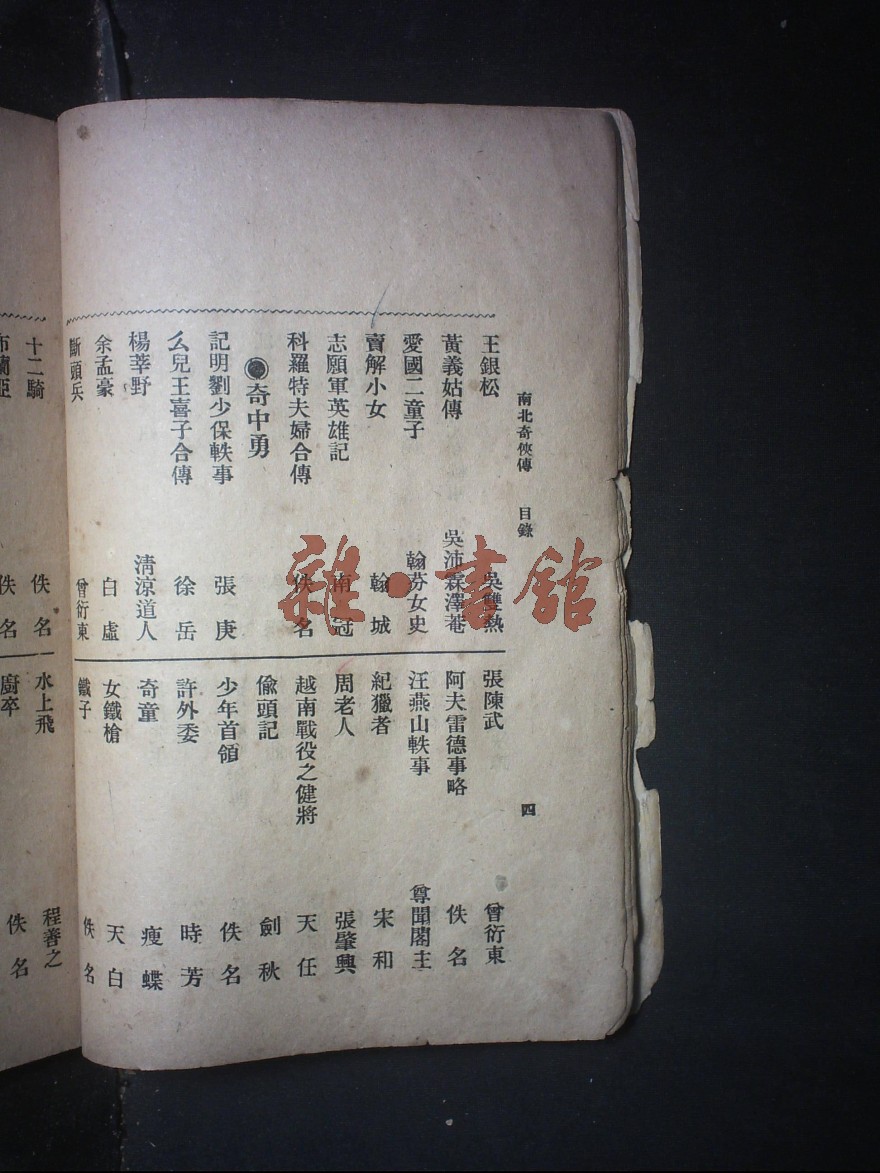 南北奇俠傳 目錄 四
王銀松 吳雙熱
黃義姑傳 吳沛霖澤菴
愛國二童子 翰芬女史
賣解小女 翰城
志願軍英雄記 南冠
科羅特夫婦合傳 佚名
奇中勇
記明劉少保軼事 張庚
么兒王喜子合傳 徐岳
楊莘野 清涼道人
余孟豪 白虛
斷頭兵 曾衍東
張陳武 曾衍東
阿夫雷德事略 佚名
汪燕山軼事 尊聞閣主
紀獵者 宋和
周老人 張肇興
越南戰役之健將 天任
偷頭記 劍秋
少年首領 佚名
許外委 時芳
奇童 瘦蝶
女鐵槍 天白
鐵子 佚名
十二騎 佚名
布蘭亞 佚名
水上飛 程善之
廚卒 佚名
雜·書館